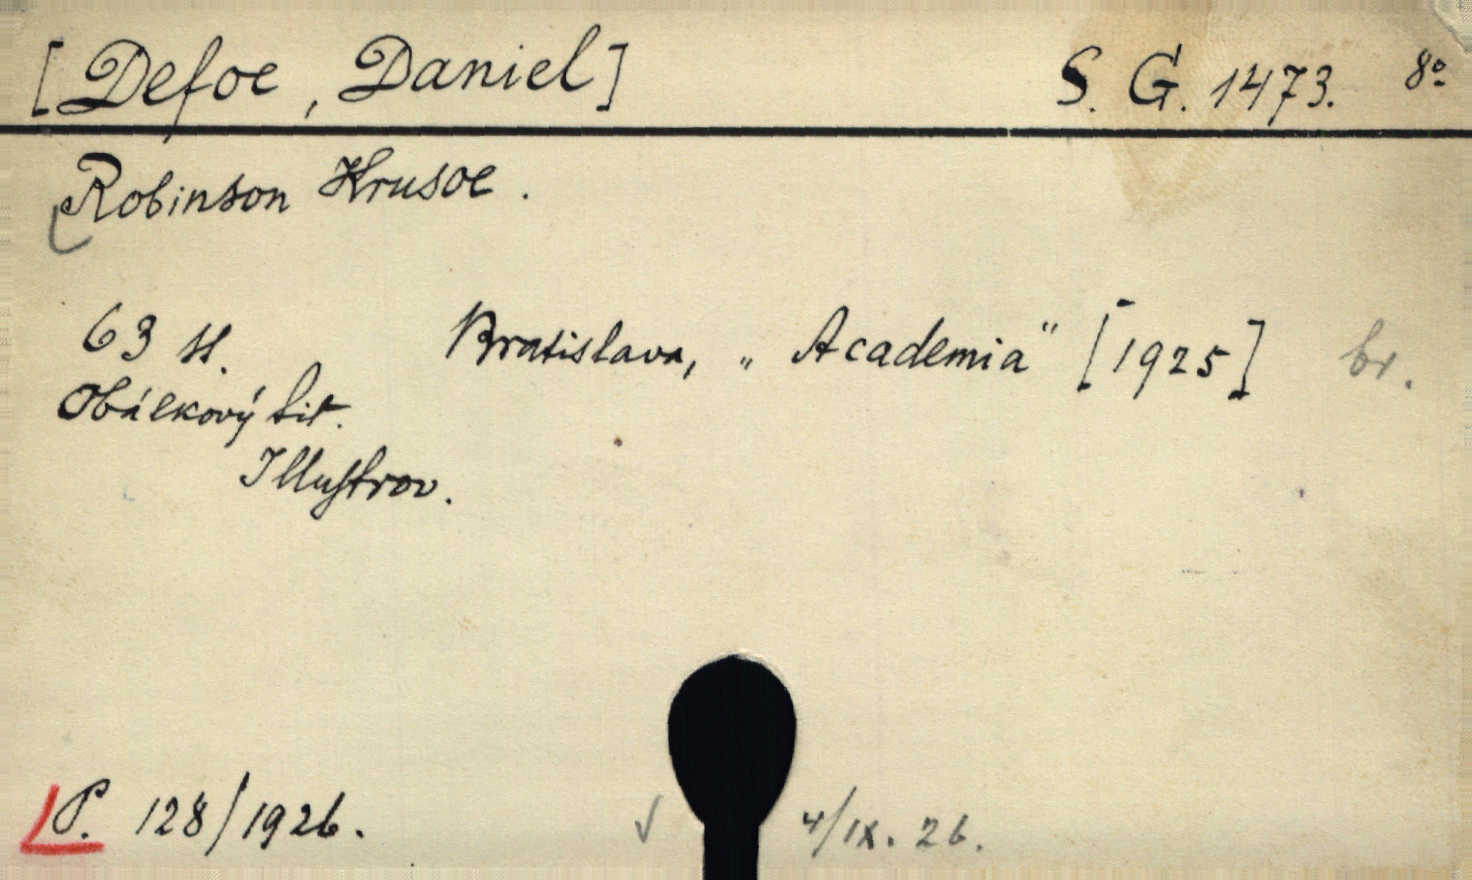 [Defoe, Daniel] S. G. 1473. 8º
Robinson Krusoe.
63 st. Bratislava, „Academia" [1925] br.
Obálkový tit.
Illustrov.
P. 128/1926. √ 4/IX. 26.